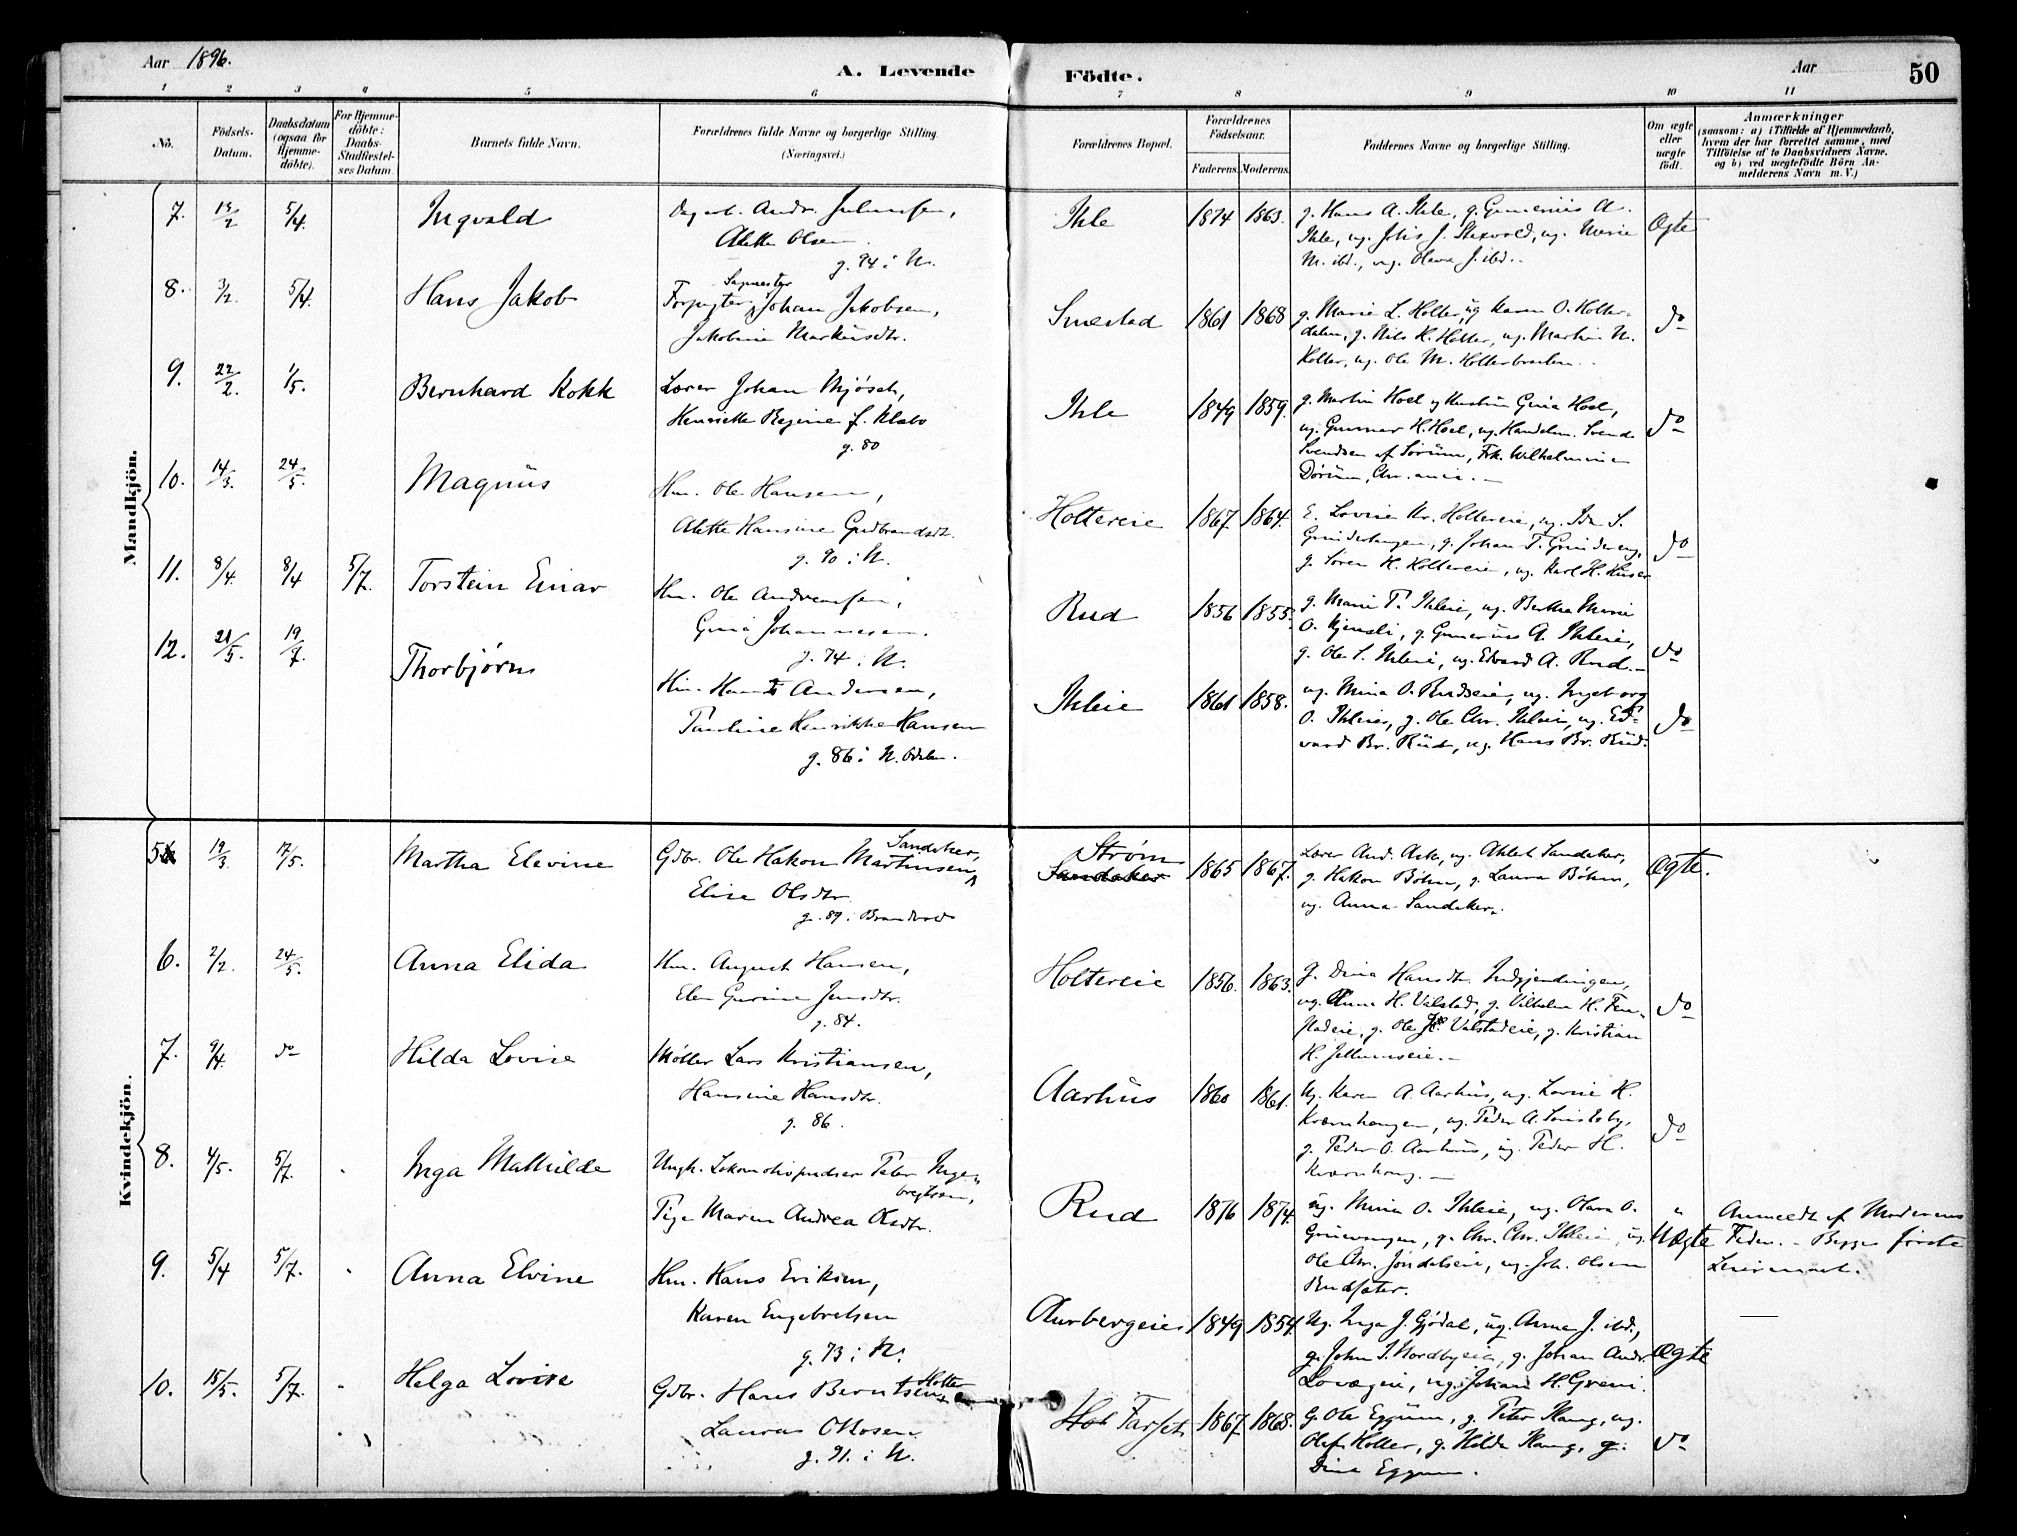 Aar 1896.
A. Levende Födte.
Aar
50
1 2 3 4 5 6 7 8 9 10 11
No.
Födsels-
Datum.
Daabsdatum
(ogsaa for
Hjemme-
döbte).
For Hjemme-
döbte:
Daabs-
Stadfæstel-
ses Datum
Barnets fulde Navn.
Forældrenes fulde Navne og borgerlige Stilling.
(Næringsvei.)
Forældrenes Bopæl.
Forældrenes
Födselsaar.
Faderens. Moderens.
Faddernes Navne og borgerlige Stilling.
Om ægte
eller
uægte
født.
Anmærkninger
(saasom: a) i Tilfælde af Hjemmedaab,
hvem der har forrettet samme, med
Tilföielse af to Daabsvidners Navne,
og b) ved uægtefödte Börn An-
melderens Navn m. V.)
Mandkjön.
7. 5/4. Ingvald
Alette Olsen.
g. 94 i N.
Ihle 1874 1863.
g. Hans A. Ihle, g. Gunerius A.
Ihle, ug. M. ibd., ug. Olava J. ibd.
Ægte
8. 3/2. 5/4. Hans Jakob
Forpagter Johan Jakobsen,
Jakobine Markusdtr.
Smestad 1861 1868
g. Marie L. Holter, ug. Karen O. Holter-
dalen, g. Nils H. Holter, ug. Martin N.
Holter, ug. Ole M. Holterbraaten.
do
9. 22/2. 1/5. Bernhard Kokk
Lærer Johan Mjøsch,
Henriette Regine f. Klæbo
g. 80
Ihle 1849 1859.
g. Martin Hoel og Hustru Gina Hoel,
ug. Gunnar H. Hoel, ug. Handelsm. Svend
Svendsen af Sørum, Frk. Wilhelmine
Dørum, Chr.ania.
do
10. 14/3. 24/5. Magnus
Hm. Ole Hansen,
Alette Hansine Gudbrandsdt.
g. 90 i N.
Holtereie 1867. 1864.
E. Lovise Kr. Holtereie, ug. Ida S.
g. Johan T.
g. Søren H. Holtereie, ug. Karl H. Huser
do
11. 8/4. 8/4 5/7. Torstein Einar
Hm. Ole Andreassen,
Gina Johannesen.
g. 74 i N.
Rud 1856 1855.
g. Marie T. Ihleie, ug. Berthe Marie
O. g. Gunerius A. Ihleie,
g. Ole S. Ihleie, ug. Edvard A. Rud.
do
12. 21/5. 19/7. Thorbjørn
Hm. Andersen,
Pauline Henrikke Hansen
g. 86 i N. Odalen.
Ihleie 1861 1858.
ug. Mina O. Rudseie, ug. Ingeborg
O. Ihleie, g. Ole Chr. Ihleie, ug. Ed-
vard Br. Rud, ug. Hans Br. Rud.
do
Kvindekjön.
5 19/3. 17/5. Martha Elevine
Gdbr. Ole Hakon Martinsen Sandaker,
Elise Olsdtr.
g. 89 i
Strøm
Sandaker 1865 1867.
Lærer And. Ask, ug. Ahlet Sandaker,
g. Hakon Bøhm, g. Laura Bøhm,
ug. Anna Sandaker.
Ægte.
6. 2/2. 24/5. Anna Elida
Hm. August Hansen,
Elen Gurine Jensdtr.
g. 84.
Holtereie 1856. 1863.
g. Dina Hansdtr.
ug. Anna H. Valstad, g. Vilhelm H.
g. Ole Valstadeie, g. Kristian
H. Jellumseie.
do
7. 9/4. do Hilda Lovise
Møller Lars Kristiansen,
Hansine Hansdtr.
g. 86.
Aarhus 1860 1861.
Ug. Karen A. Aarhus, ug. Lovise H.
Kværnhaugen, ug. Peder A.
g. Peder O. Aarhus, ug. Peder H.
Kværnhaug.
do
8. 4/5. 5/7. Inga Mathilde
Ungk. Lokomotivpudser Peter Inge-
bregtsen,
Pige Maren Andrea Olsdtr.
Rud 1876 1874.
ug. Mina O. Ihleie, ug. Olava O.
g. Chr. Chr. Ihleie, ug.
Ole Chr. ug. Joh. Olsen
Rudsæter.
Uægte
Anmeldt af Moderens
Fader. - Begges første
Leiermaal.
9. 5/4 5/7. Anna Elvine
Hm. Hans Eriksen,
Karen Engebretsen
g. 73 i N.
Aurbergeie 1849 1854.
Ug. Inga J. Gjødal, ug. Anna J. ibd.,
g. John S. Nordbyeie, g. Johan Andr.
ug. Johan H. Greni.
Ægte
10. 15/5. 5/7. Helga Lovise
Gdbr. Hans Berntsen Holter
Laura Ottosen
g. 91. i N.
Farset 1867. 1868.
g. Ole Eggum, g. Peter Haug, ug.
Olaf Holter, g. Hilda Haug, g.
Dina Eggum.
do